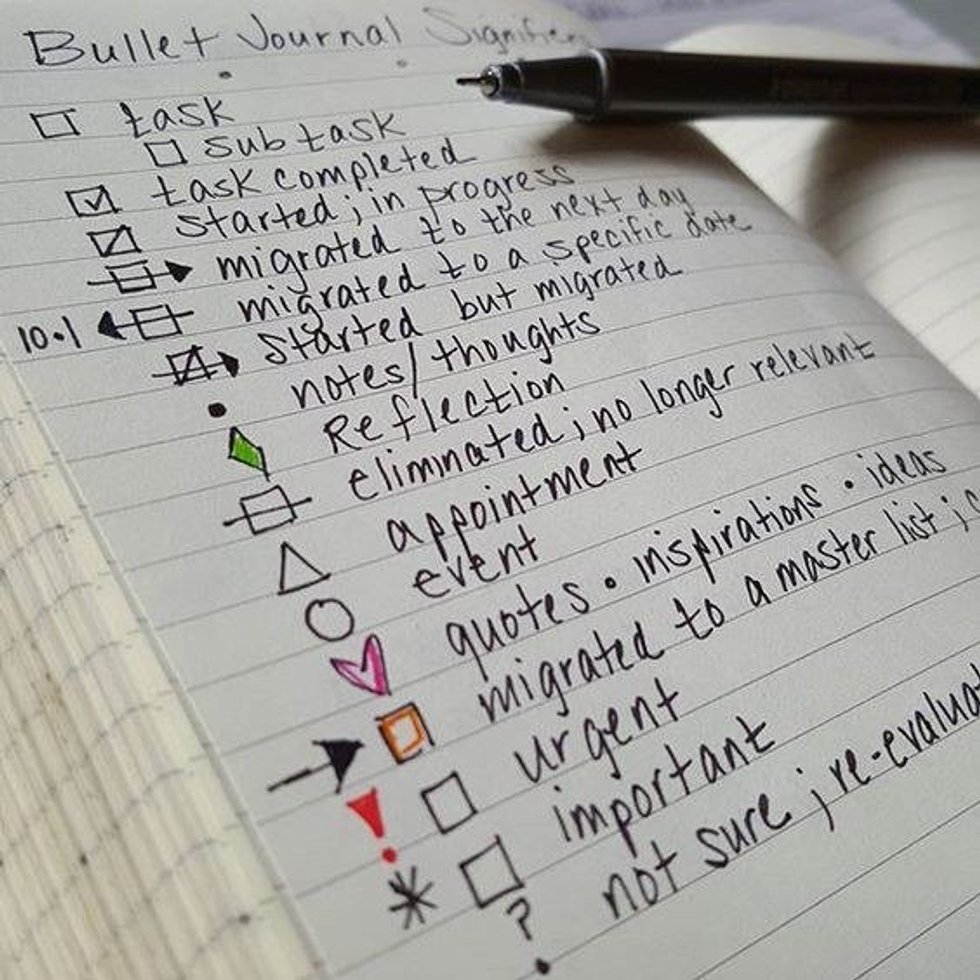 Bullet Journal Signifiers
task
sub task
task completed
started; in progress
migrated to the next day
10.1 migrated to a specific date
started but migrated
notes/thoughts
Reflection
eliminated; no longer relevant
appointment
event
quotes • inspirations • ideas
migrated to a master list;
! urgent
* important
? not sure;